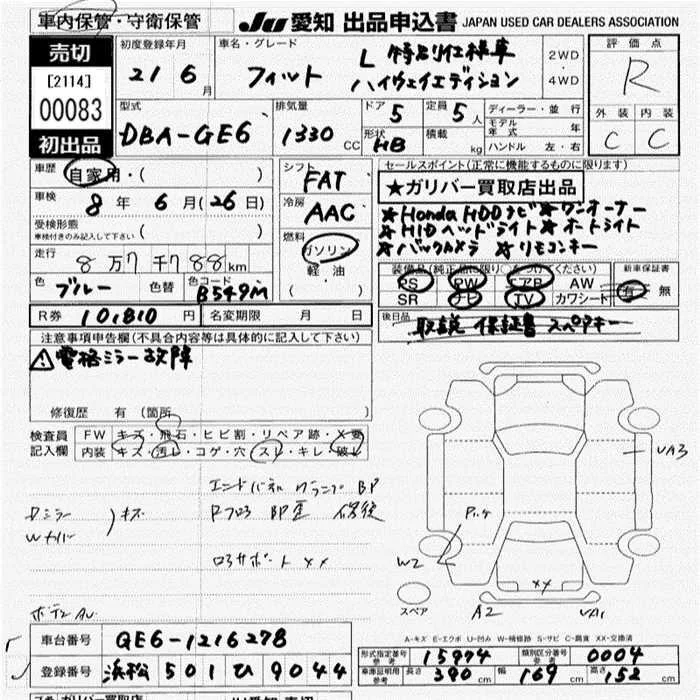 車内保管・守衛保管
JU 愛知 出品申込書 JAPAN USED CAR DEALERS ASSOCIATION
売切
[2114]
00083
初出品
初度登録年月
21 6月
車名・グレード
フィット
L 特別仕様車
ハイウェイエディション
2WD
4WD
評価点
R
外装 内装
C C
型式
DBA-GE6
排気量
1330 CC
ドア 5
形状 HB
定員 5人
積載 kg
ディーラー・並行
モデル年式 年
ハンドル 左・右
車歴 自家用・( )
車検 8年 6月(26日)
受検形態 ( )
車検付きのみ記入して下さい
走行 8万7千788km
色 ブルー 色替 色コード B549M
シフト FAT
冷房 AAC
燃料
ガソリン
軽油
( )
セールスポイント(正常に機能するものに限ります)
★ガリバー買取店出品
★Honda HDDナビ★ワンオーナー
★HIDヘッドライト★オートライト
★バックカメラ ★リモコンキー
装備品(純正品に限り○をつけてください)
PS PW エアB AW
SR ナビ TV カワシート
新車保証書
有 無
R券 10,810円 名変期限 月 日
後日品 取説 保証書 スペアキー
注意事項申告欄(不具合内容等は具体的に記入して下さい)
⚠電格ミラー故障
修復歴 有(箇所 )
検査員記入欄
FW キズ・飛石・ヒビ割・リペア跡・X要
内装 キズ・汚レ・コゲ・穴・スレ・キレ・破レ
エンドパネル クランプ BP
Rフロア BP歪 修復
キズ
XX
UA3
W2
XX
A2 UA1
スペア
A-キズ E-エクボ U-凹み W-補修跡 S-サビ C-腐食 XX-交換済
車台番号 GE6-1216278
登録番号 浜松 501 ひ 9044
形式指定番号参考 15974 類別区分番号参考 0004
車庫証明用参考 長さ 390cm 幅 169cm 高さ 152cm